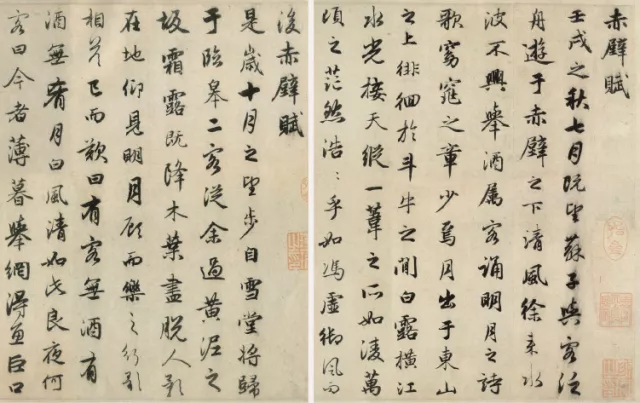 赤壁賦
壬戌之秋七月既望蘇子與客泛
舟遊于赤壁之下清風徐来水
波不興舉酒属客誦明月之詩
歌窈窕之章少焉月出于東山
之上徘徊於斗牛之間白露橫江
水光接天縱一葦之所如凌萬
頃之茫然浩〻乎如馮虛御風而
後赤壁賦
是歲十月之望步自雪堂將歸
于臨皋二客從余過黃泥之
坂霜露既降木葉盡脫人影
在地仰見明月顧而樂之行歌
相荅已而歎曰有客無酒有
酒無肴月白風清如此良夜何
客曰今者薄暮舉網得魚巨口